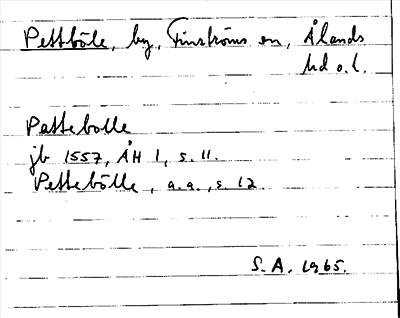 Pettböle, by, Finströms sn, Ålands
hd o. l.
Pattebolle
jb 1557, ÅH 1, s. 11.
Pettebölle, a.a., s. 12
S. A. 1965.